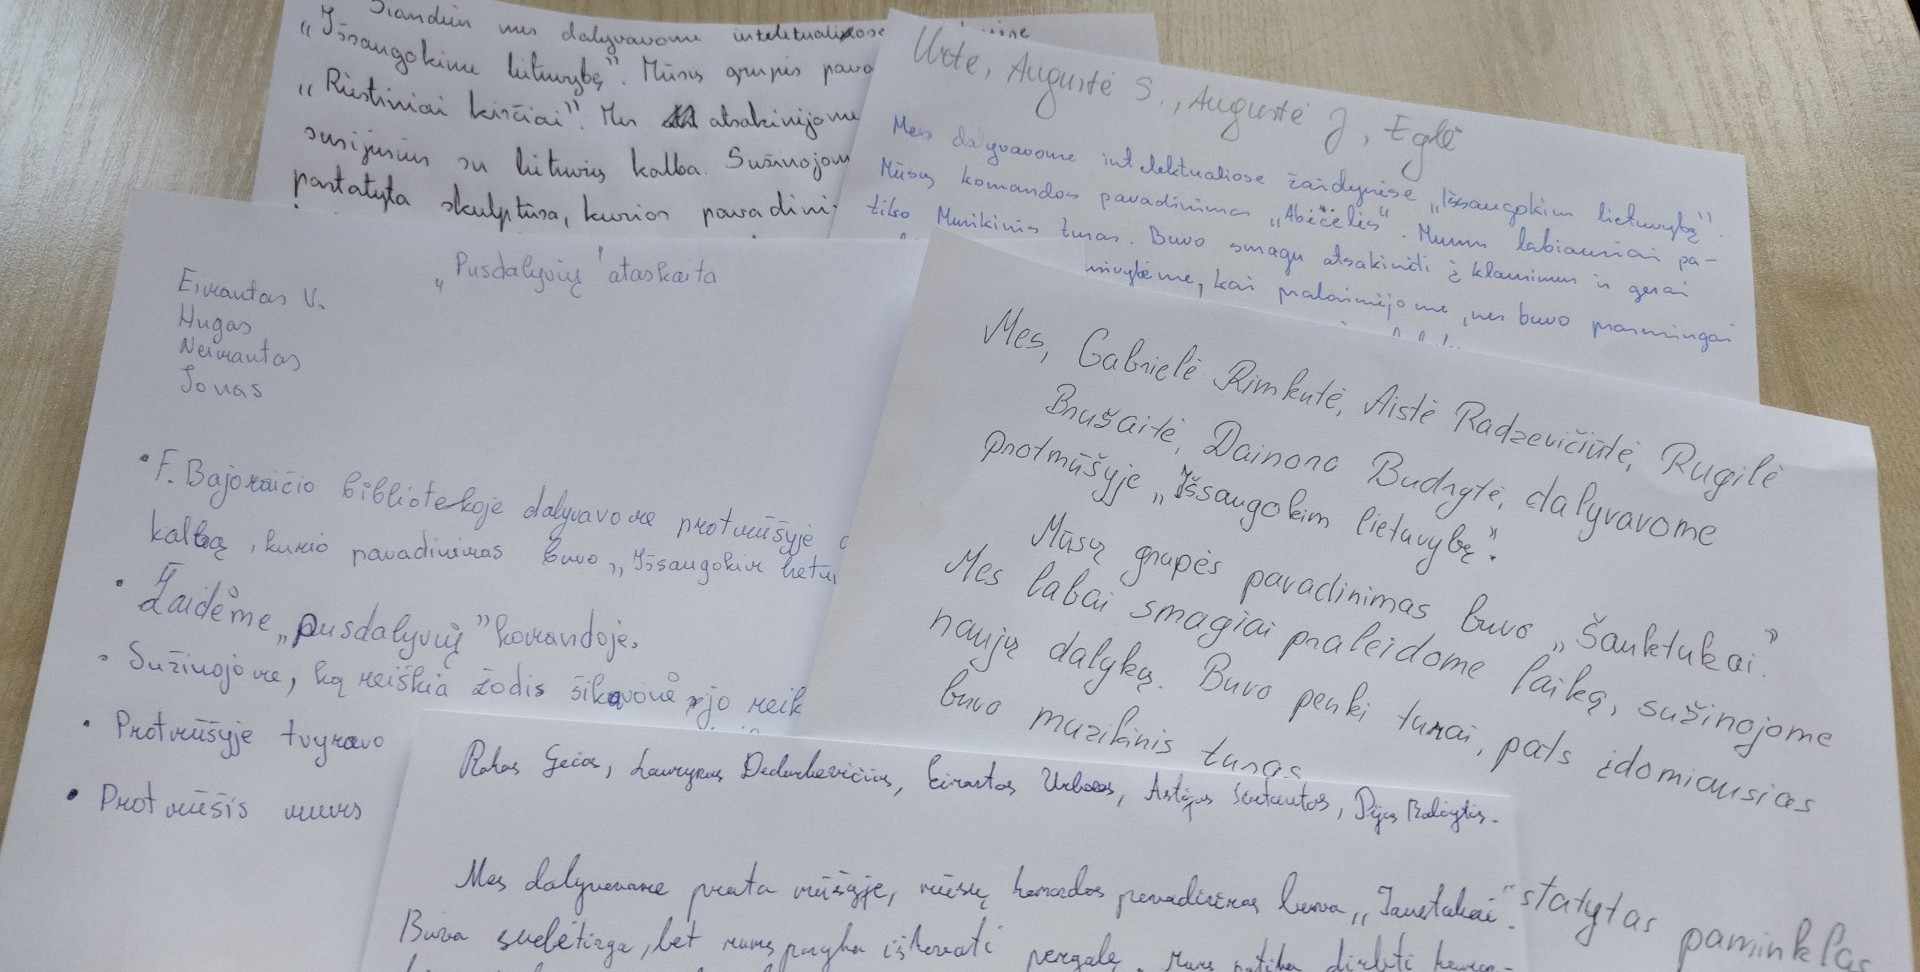 Šiandien mes dalyvavome intelektualiose
„Išsaugokime lietuvybę". Mūsų grupės pava
„Riestiniai kirčiai". Mes atsakinėjome
susijusius su lietuvių kalba. Sužinojom
pastatyta skulptūra, kurios pavadini-
Urtė, Augustė S., Augustė J, Eglė
Mes dalyvavome intelektualiose žaidynėse „Išsaugokim lietuvybę".
Mūsų komandos pavadinimas „Abėcėlės". Mums labiausiai pa-
tiko Muzikinis turas. Buvo smagu atsakinėti į klausimus ir gerai
kai pralaimėjome, nes buvo prasmingai
„Pusdalyvių" ataskaita
Eimantas V.
Hugas
Neimantas
Jonas
• F. Bajoraičio bibliotekoje dalyvavome protmūšyje
kalbą, kurio pavadinimas buvo „Išsaugokim lietu
• Žaidėme „pusdalyvių" komandoje.
• Sužinojome, ką reiškia žodis šikšnonė jo reik
• Protmūšyje tvyravo
• Protmūšis mums
Mes, Gabrielė Rimkutė, Aistė Radzevičiūtė, Rugilė
Brušaitė, Dainora Budrytė, dalyvavome
protmūšyje „Išsaugokim lietuvybę".
Mūsų grupės pavadinimas buvo „Šauktukai".
Mes labai smagiai praleidome laiką, sužinojome
naujų dalykų. Buvo penki turai, pats įdomiausias
buvo muzikinis turas
statytas paminklas
Rokas Gečas, Laurynas Eimantas Urbonas,
Mes dalyvavome proto mūšyje, mūsų komandos pavadinimas buvo „Jaustukai".
Buvo sudėtinga, bet mums pavyko iškovoti pergalę. Mums patiko dirbti koman-